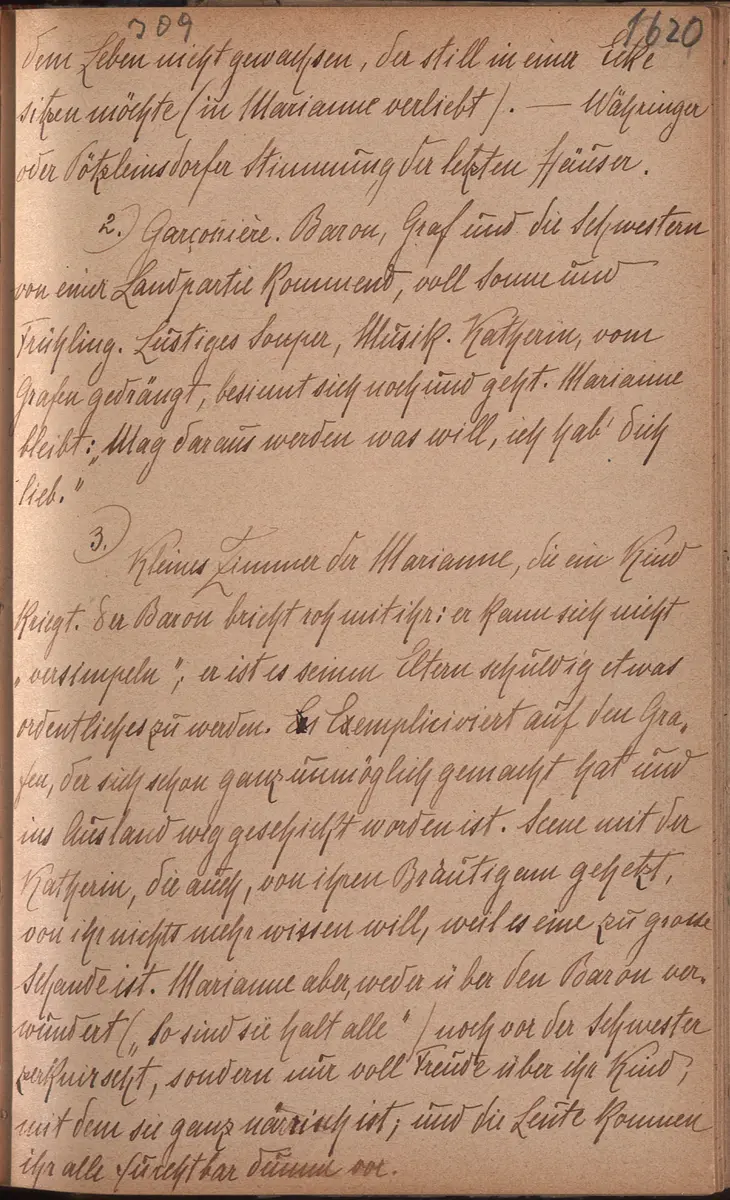 309
1620
dem Leben nicht gewachsen, der still in einer Ecke
sitzen möchte (in Marianne verliebt). — Währinger
oder Pötzleinsdorfer Stimmung der letzten Häuser.
2.) Garçonière. Baron, Graf und die Schwestern
von einer Landpartie kommend, voll Sonne und
Frühling. Lustiges Souper, Musik. Katherin, vom
Grafen gedrängt, besinnt sich noch und geht. Marianne
bleibt: „Mag daraus werden was will, ich hab' dich
lieb."
3.) Kleines Zimmer der Marianne, die ein Kind
kriegt. Der Baron bricht roh mit ihr: er kann sich nicht
„versimpeln"; er ist es seinen Eltern schuldig etwas
ordentliches zu werden. Er Exempliciviert auf den Gra-
fen, der sich schon ganz unmöglich gemacht hat und
ins Ausland weggeschickt worden ist. Scene mit der
Katherin, die auch, von ihren Bräutigam gehetzt,
von ihr nichts mehr wissen will, weil es eine zu grosse
Schande ist. Marianne aber, weder über den Baron ver-
wundert („So sind sie halt alle") noch vor der Schwester
zerknirscht, sondern nur voll Freude über ihr Kind,
mit dem sie ganz närrisch ist; und die Leute kommen
ihr alle furchtbar dumm vor.